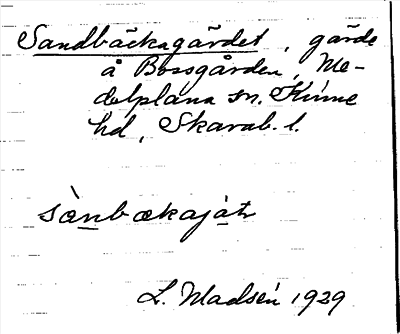 Sandbäckagärdet, gärde
å Bossgården, Me-
delplana sn. Kinne
hd, Skarab. l.
sànbækajàtr
L. Madsén 1929